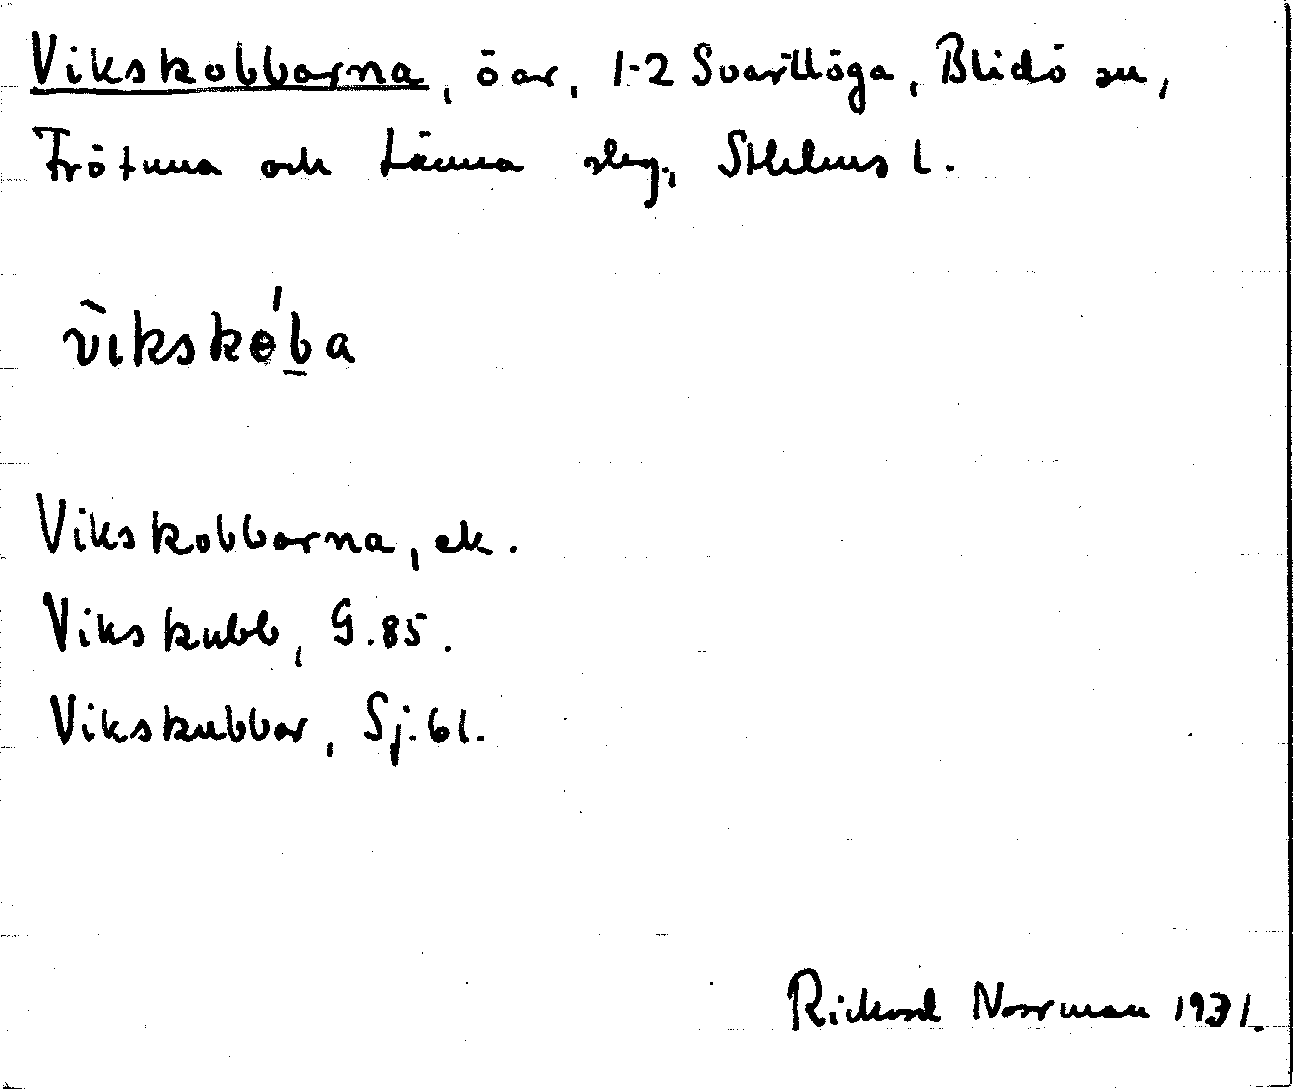 Vikskobbarna, öar, 1-2 Svartlöga, Blidö sn,
Frötuna och Länna slg., Sthlms l.
vikskoba
Vikskobbarna, ek.
Vikskubb, G.85.
Vikskubbar, Sj.61.
Rickard Norrman 1931.